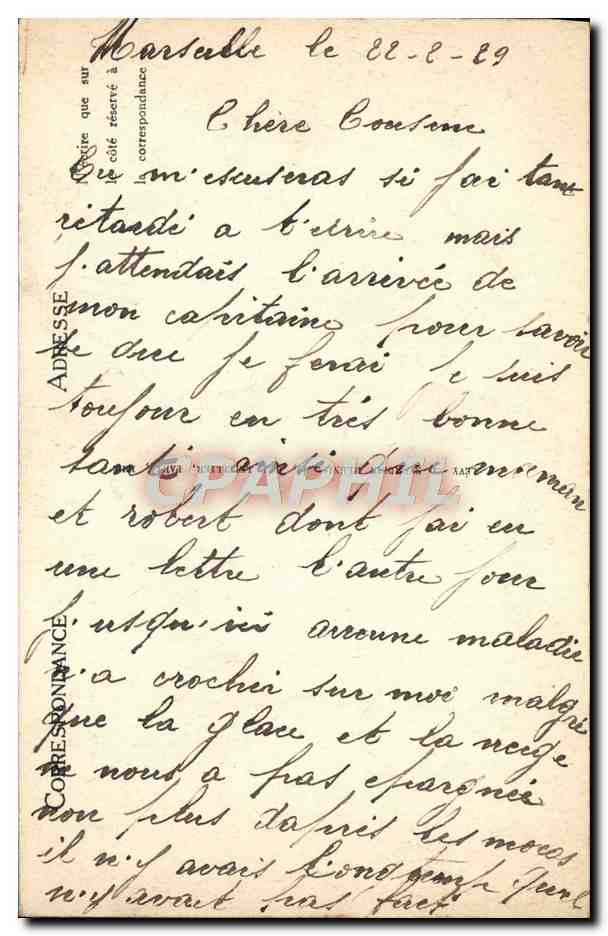 Marseille le 22-2-29
Chère Cousine
Tu m'escuseras si j'ai tant
retardé a t'ecrire mais
j'attendais l'arrivée de
mon capitaine pour savoir
ce que je ferai je suis
toujour en très bonne
santé ainsi que maman
et robert dont j'ai eu
une lettre l'autre jour
j'usqu'ici aucune maladie
n'a crocher sur moi malgré
que la glace et la neige
ne nous a pas epargnée
non plus dapres les mocos
il n'y avais longtemp quel
n'y avait pas fait
N'écrire que sur
le côté réservé à
la correspondance
ADRESSE
CORRESPONDANCE
CPAPHIL